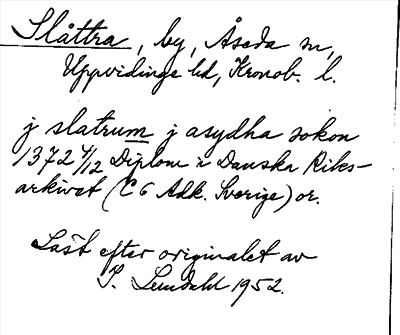 Slåttra, by, Åseda sn,
Uppvidinge hd, Kronob. l.
j slatrum j asydha sokon
1372 4/12 Diplom i Danska Riks-
arkivet (C 6 Adk. Sverige) or.
Läst efter originalet av
I. Lundahl 1952.